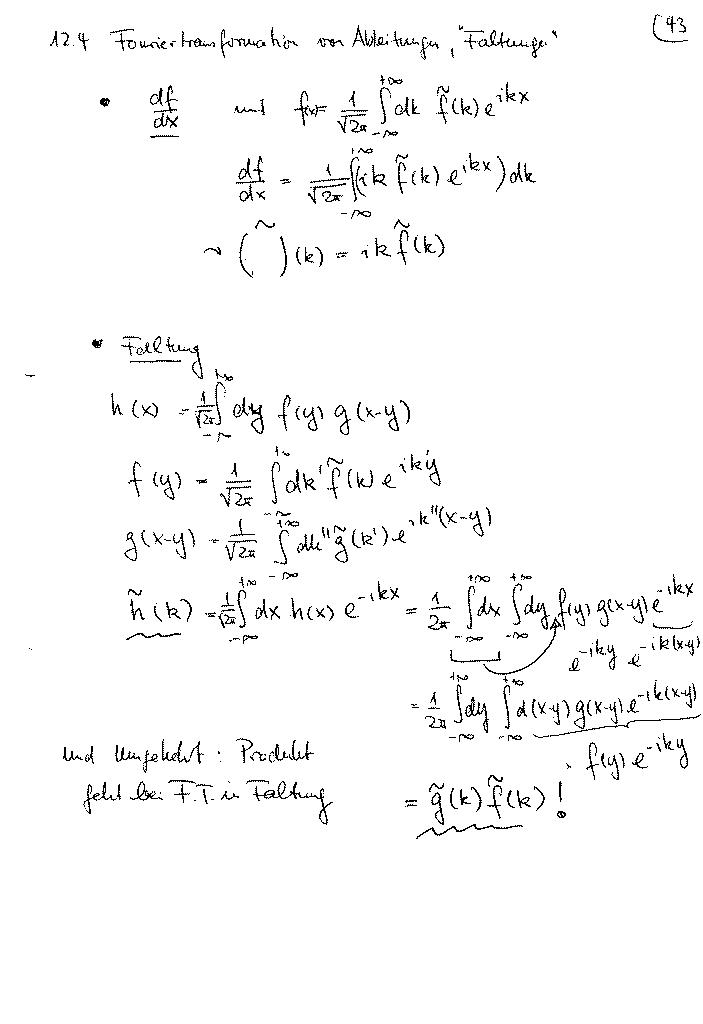 12.4 Fouriertransformation von Ableitungen, "Faltungen" (43
• df/dx und f(x) = 1/√2π ∫_{-∞}^{+∞} dk f̃(k) e^{ikx}
df/dx = 1/√2π ∫_{-∞}^{+∞} (ik f̃(k) e^{ikx}) dk
~ ( ˜ )(k) = ik f̃(k)
• Faltung
h(x) = 1/√2π ∫_{-∞}^{+∞} dy f(y) g(x-y)
f(y) = 1/√2π ∫_{-∞}^{+∞} dk' f̃(k) e^{ik'y}
g(x-y) = 1/√2π ∫_{-∞}^{+∞} dk'' g̃(k') e^{ik''(x-y)}
h̃(k) = 1/√2π ∫_{-∞}^{+∞} dx h(x) e^{-ikx} = 1/2π ∫_{-∞}^{+∞} dx ∫_{-∞}^{+∞} dy f(y) g(x-y) e^{-ikx}
e^{-iky} e^{-ik(x-y)}
= 1/2π ∫_{-∞}^{+∞} dy ∫_{-∞}^{+∞} d(x-y) g(x-y) e^{-ik(x-y)}
und umgekehrt: Produkt · f(y) e^{-iky}
geht bei F.T. in Faltung = g̃(k) f̃(k) !